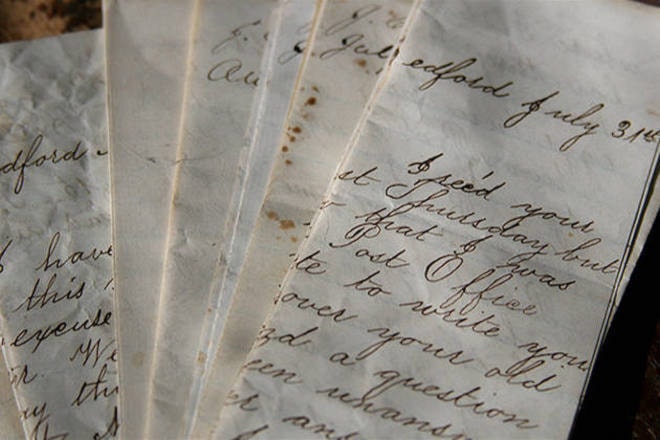 dford
I have
this
excuse
r. We
ay thi
J.
Au
J. Jul
edford July 31st
I rec'd your
st Thursday but
that I was
Post Office
te to write you
over your old
nd a question
een unansw
er and